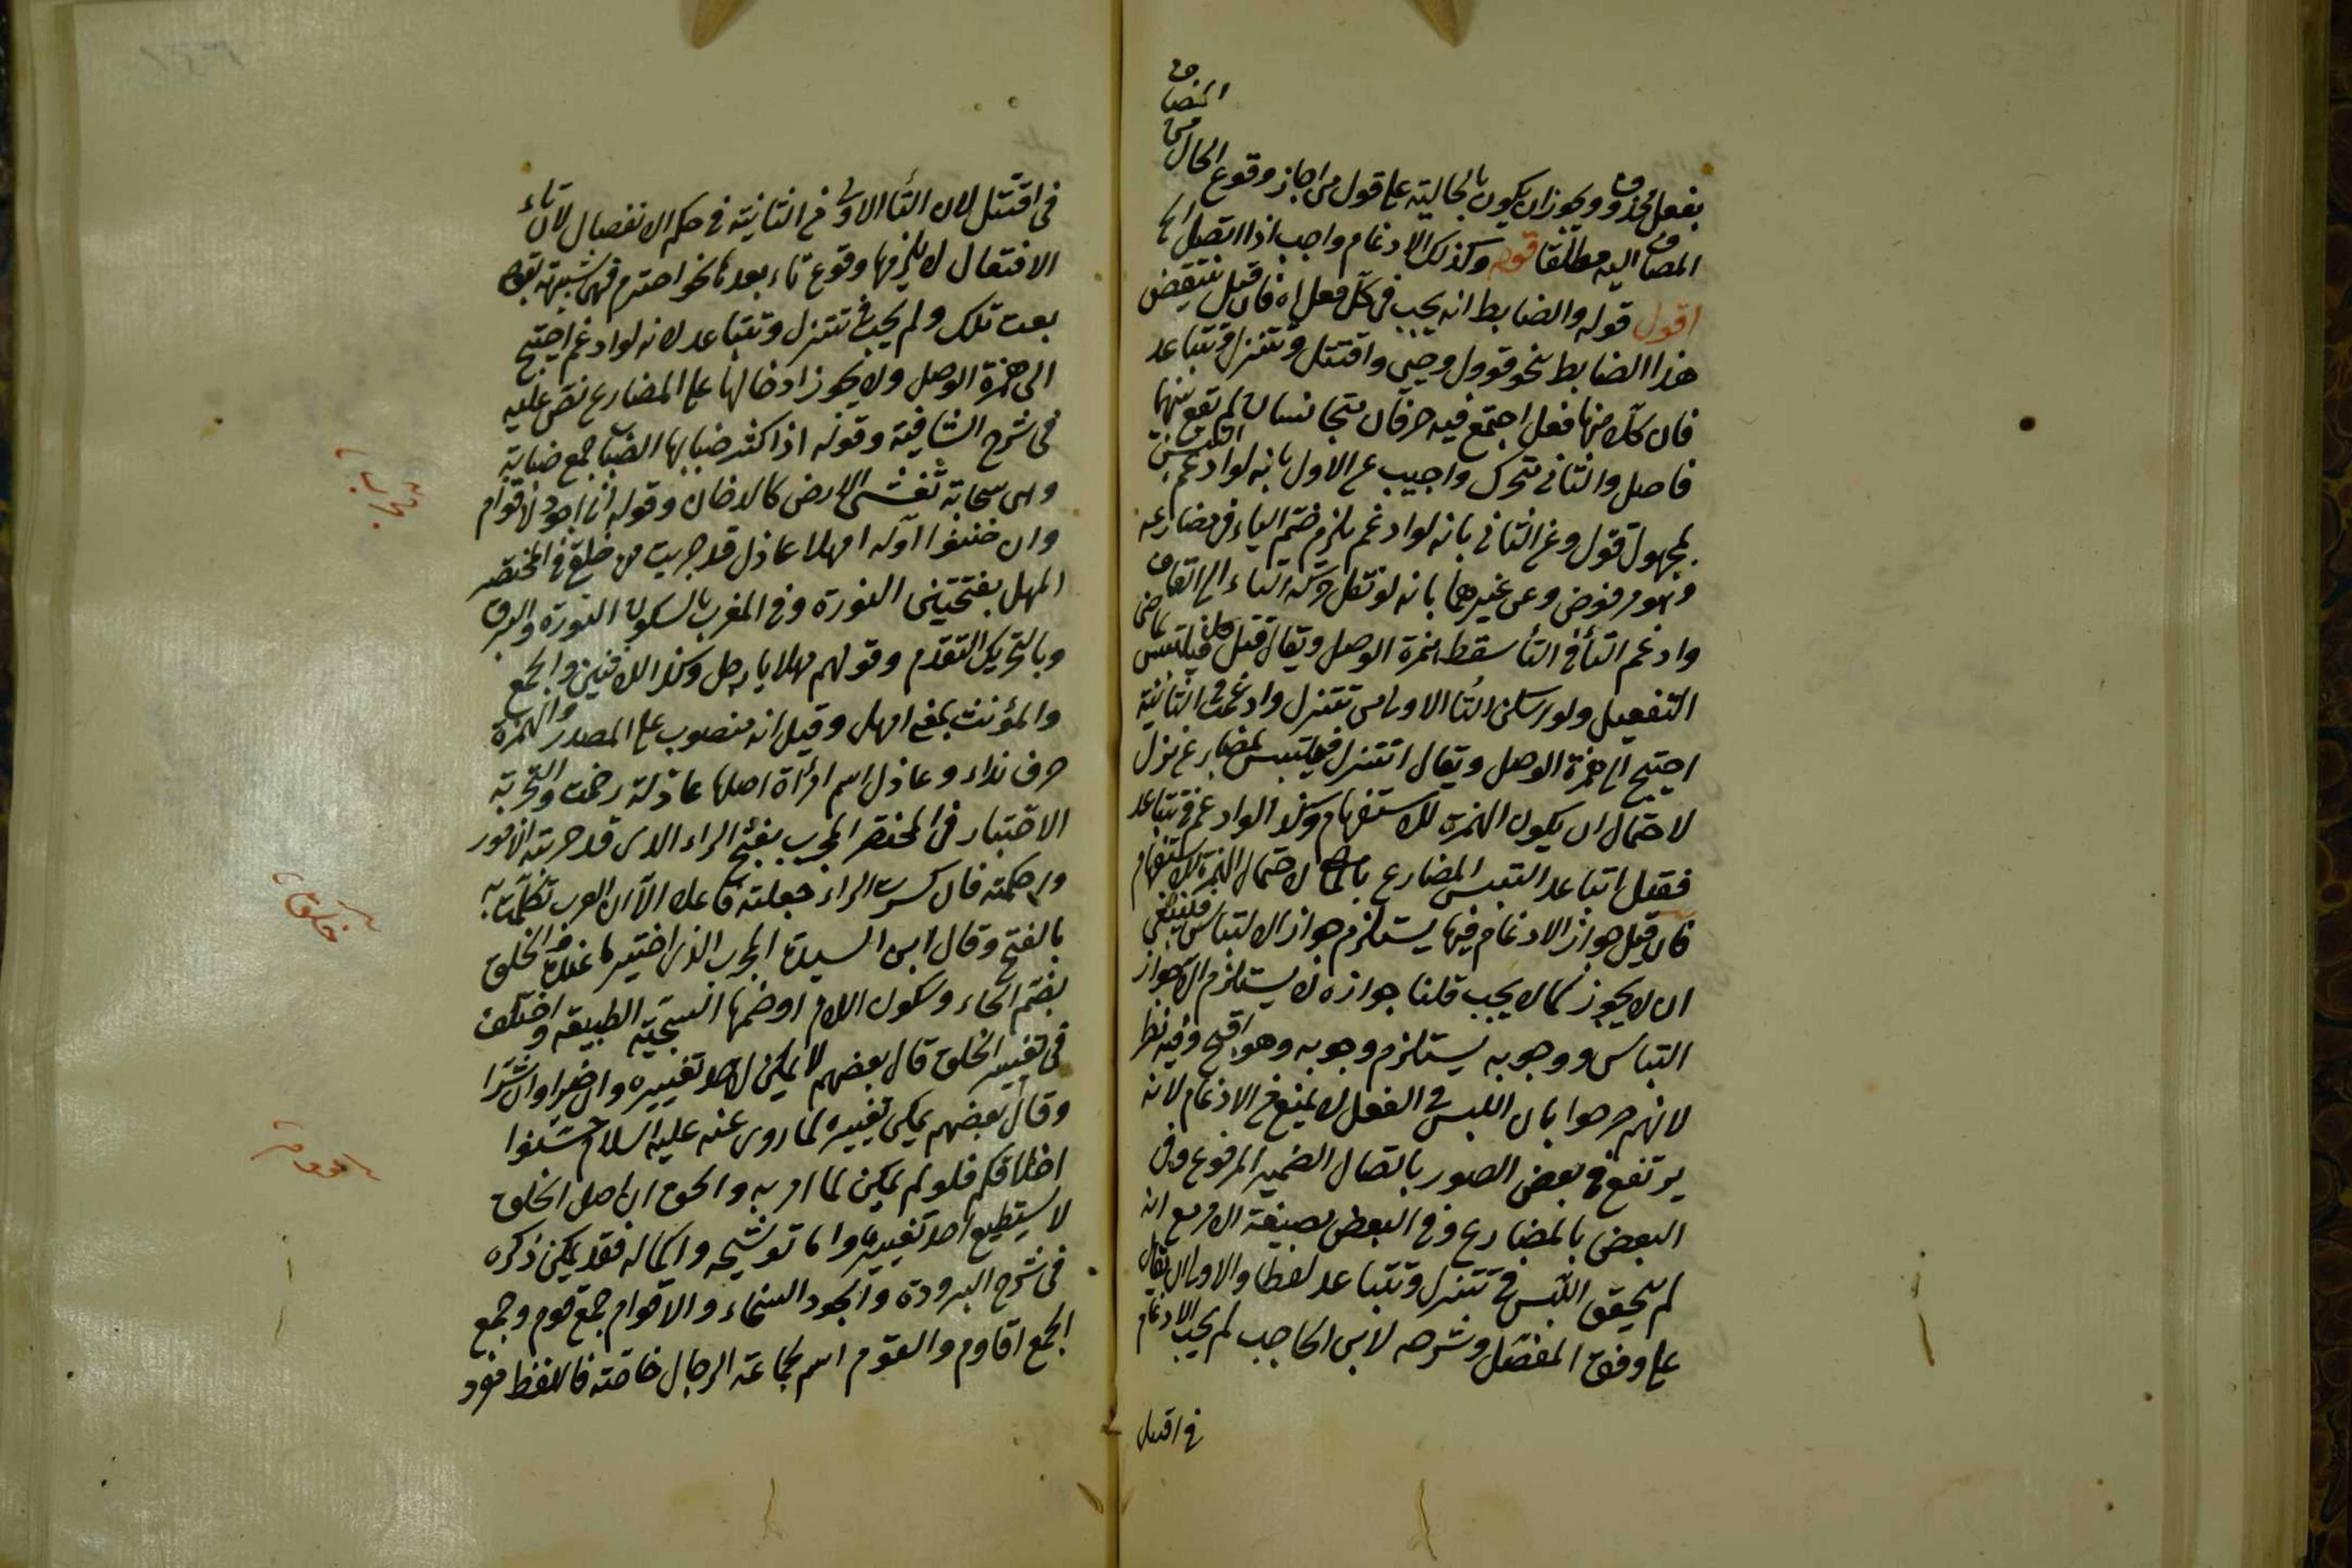 بفعل محذوف ويجوز ان يكون بالحالية على قول من اجاز وقوع الحال من المضاف
المضاف اليه مطلقا قوله وكذلك الادغام واجب اذا اتصل الخ
اقول قوله والضابط انه يجب فى كل فعل اه فان قيل ينتقض
هذا الضابط بنحو قوول وحيى واقتتل وتتنزل وتتباعد
فان كلا منها فعل اجتمع فيه حرفان متجانسان لم يقع بينهما
فاصل والثانى متحرك واجيب عن الاول بانه لو ادغم التبس
بمجهول قول وعن الثانى بانه لو ادغم يلزم ضم الياء فى مضارعه
وهو مرفوض وعن غيرهما بانه لو نقل حركة التاء الى القاف
وادغم التأ فى التأ سقط همزة الوصل ويقال قتل فيلتبس بماضى
التفعيل ولو اسكن التا الاولى من تتنزل وادغمت فى الثانية
احتيج الى همزة الوصل ويقال اتنزل فيلتبس بمضارع نزل
لاحتمال ان يكون الهمزة للاستفهام وكذا لو ادغم فى تتباعد
فقيل اتباعد التبس المضارع لاحتمال الهمزة للاستفهام
فان قيل جواز الادغام فيها يستلزم جواز الالتباس فينبغى
ان لا يجوز كما لا يجب قلنا جوازه لا يستلزم الا جواز
التباس ووجوبه يستلزم وجوبه وهو اقبح وفيه نظر
لانهم صرحوا بان اللبس فى الفعل لا يمنع عن الادغام لانه
يرتفع فى بعض الصور باتصال الضمير المرفوع وفى
البعض بالمضارع وفى البعض بصيغة الامر مع انه
لم يتحقق اللبس فى تتنزل وتتباعد لفظا والاولى ان يقال
على وفق المفصل وشرحه لابن الحاجب لم يجب الادغام
فى اقتتل
فى اقتتل لان التأ الاولى من الثانية فى حكم الانفصال لان تاء
الافتعال لا يلزمها وقوع تاء بعدها نحو احترم فهى شبيهة بقولك
بعت تلك ولم يجب فى تتنزل وتتباعد لانه لو ادغم احتيج
الى همزة الوصل ولا يجوز ادخالها على المضارع نص عليه
فى شرح الشافية وقوله اذا كثر ضبابها الضباب جمع ضبابة
وهى سحابة تغشى الارض كالدخان وقوله انى اجود لاقوام
وان ضننوا اوله امهلا عاذل قد جربت من خلقى فى المختصر
المهل بفتحتين التورة وفى المغرب بالسكون التورة والرفق
وبالتحريك التقدم وقولهم مهلا يا رجل وكذا للاثنين والجمع
والمؤنث بمعنى امهل وقيل انه منصوب على المصدر والهمزة
حرف نداء وعاذل اسم امرأة اصلها عاذلة رخمت والتجربة
الاختبار فى المختصر المجرب بفتح الراء الذى قد جربته الامور
واحكمته فان كسرت الراء جعلته فاعلا الا ان العرب تكلمت به
بالفتح وقال ابن السيدة المجرب الذى اختير ما عنده والخلق
بضم الخاء وسكون اللام او ضمها السجية الطبيعة واختلف
فى تغيير الخلق قال بعضهم لا يمكن لاحد تغييره وان خيرا وان شرا
وقال بعضهم يمكن تغييره لما روى عنه عليه السلام حسنوا
اخلاقكم فلو لم يمكن لما امر به والحق ان اصل الخلق
لا يستطيع احد تغييره واما توشيحه واكماله فقد يمكن ذكره
فى شرح البرودة والجود السخاء والاقوام جمع قوم وجمع
الجمع اقاوم والقوم اسم لجماعة الرجال خاصة فاللفظ مفرد
تجارب